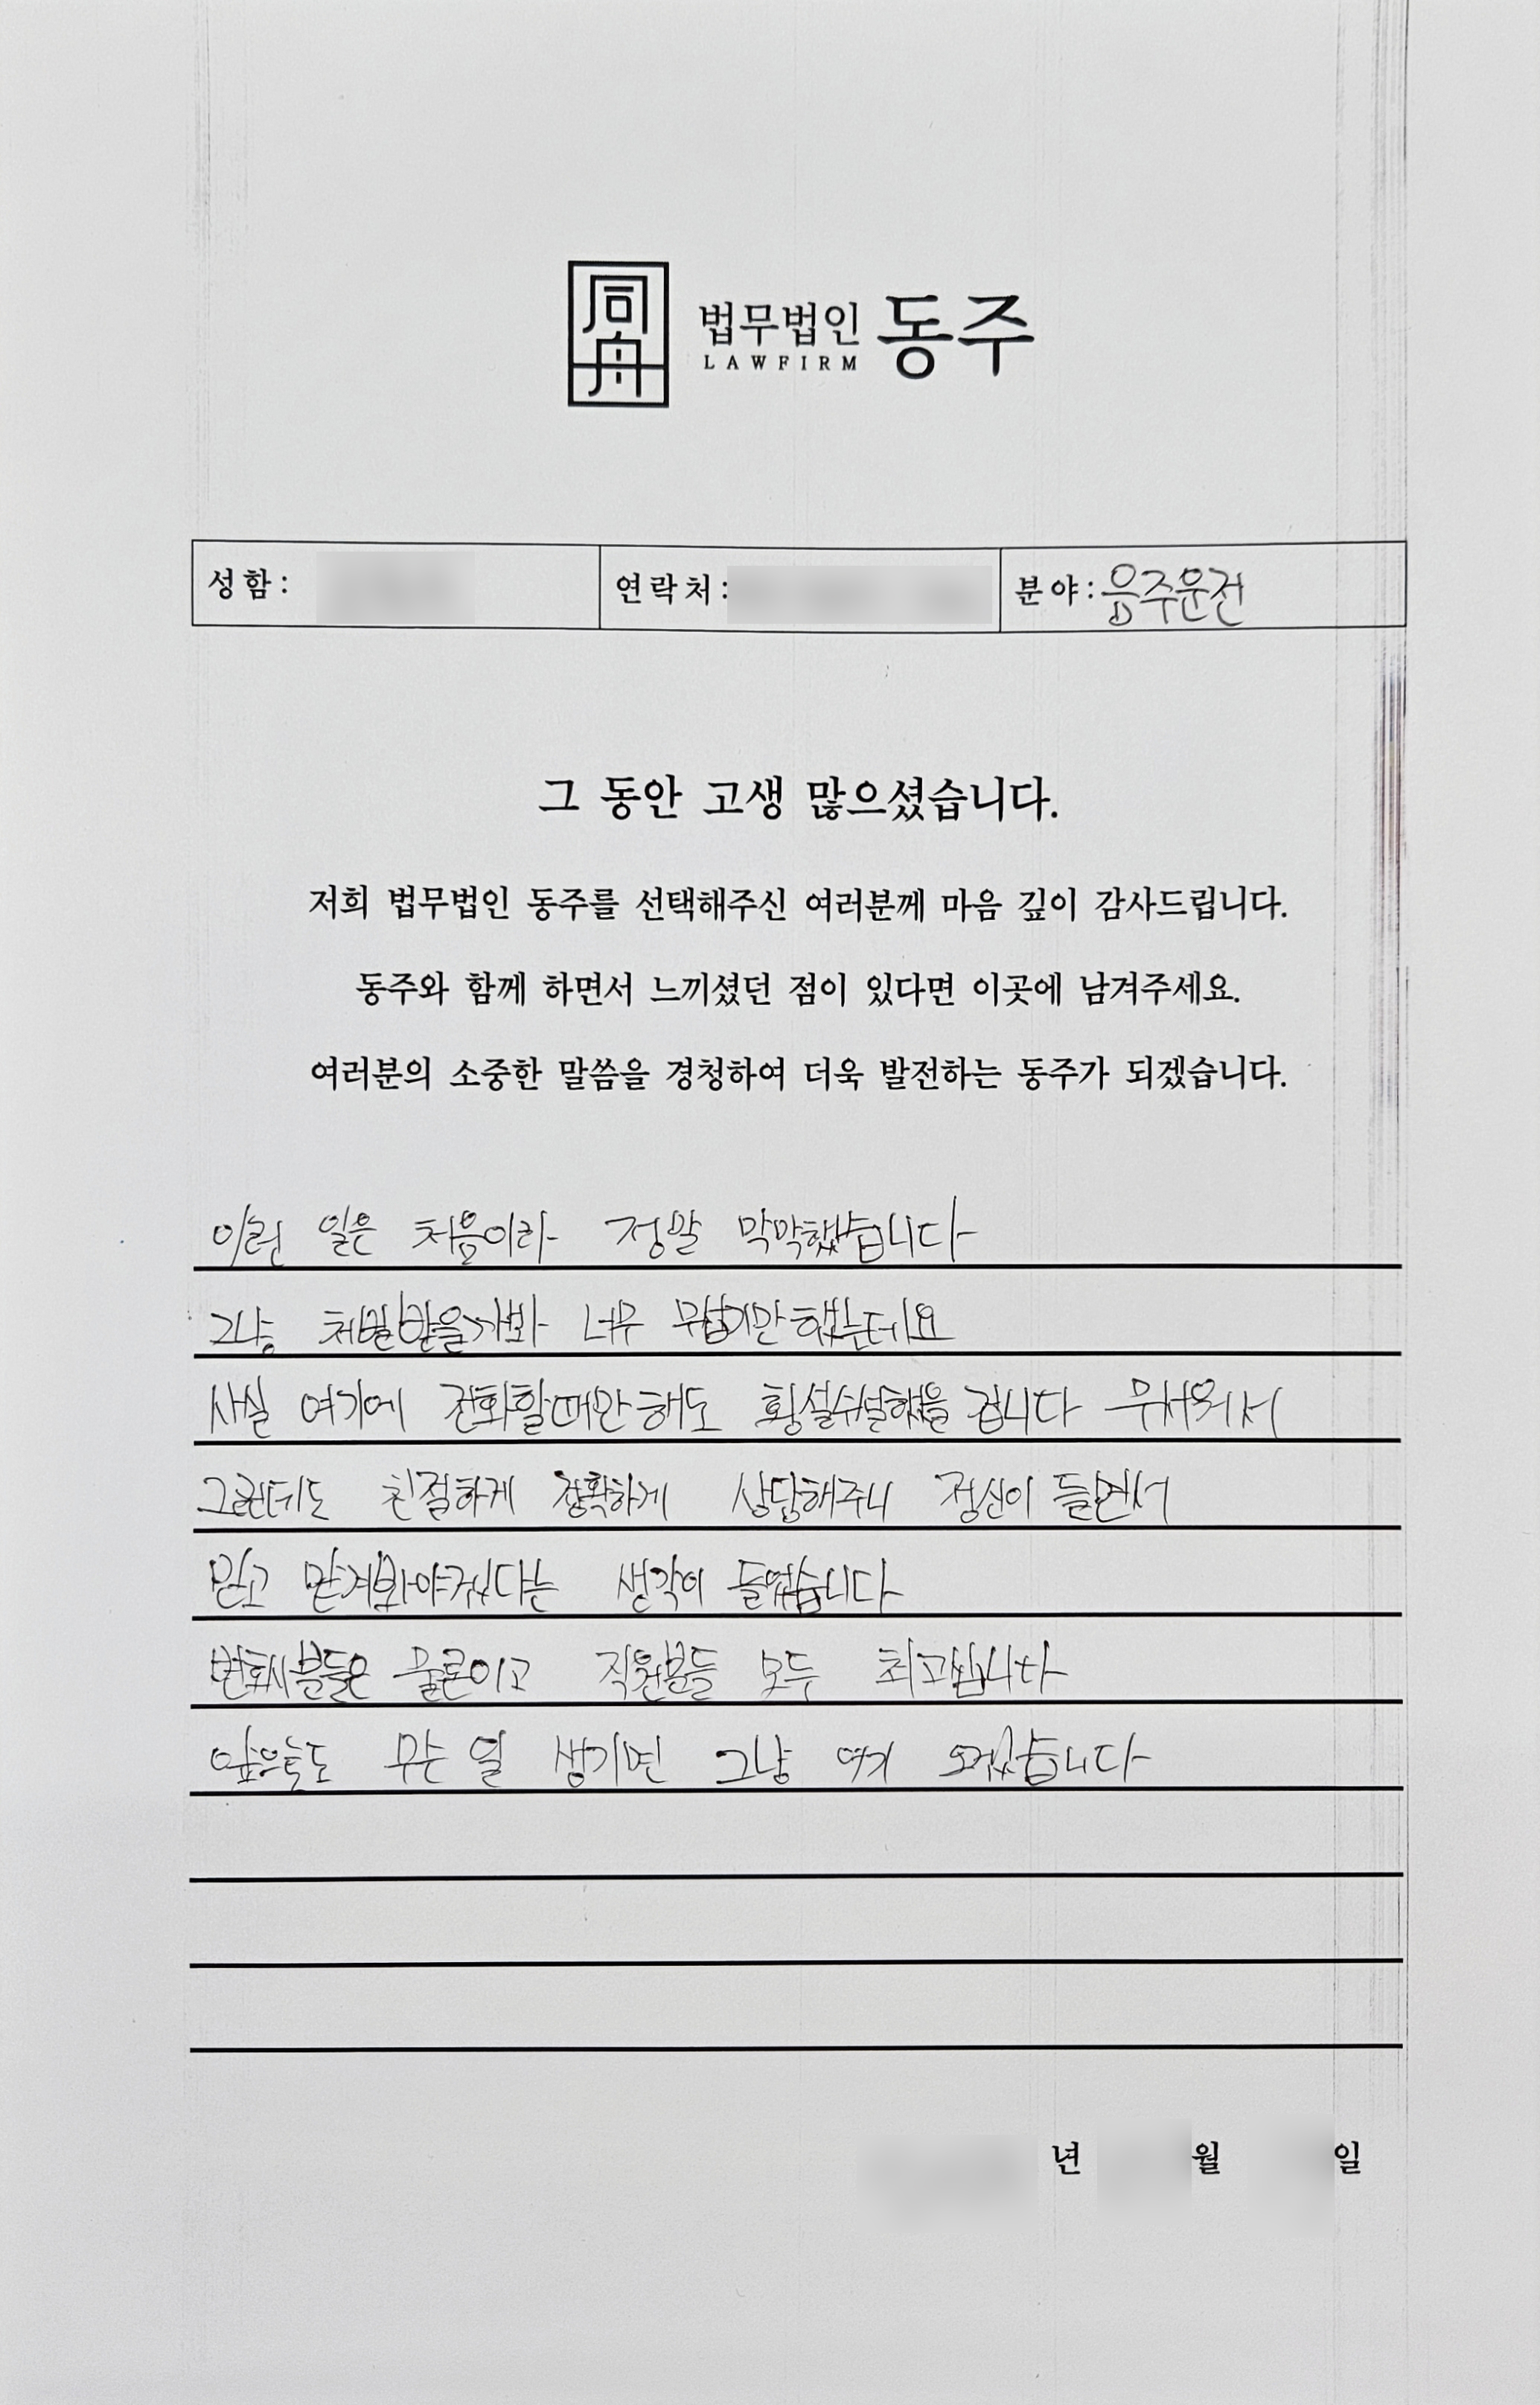 同舟 법무법인 동주
LAWFIRM
성함: 연락처: 분야: 음주운전
그 동안 고생 많으셨습니다.
저희 법무법인 동주를 선택해주신 여러분께 마음 깊이 감사드립니다.
동주와 함께 하면서 느끼셨던 점이 있다면 이곳에 남겨주세요.
여러분의 소중한 말씀을 경청하여 더욱 발전하는 동주가 되겠습니다.
이런 일은 처음이라 정말 막막했습니다
그냥 처벌받을까봐 너무 무섭기만 했는데요
사실 여기에 전화할때만 해도 횡설수설했을 겁니다 무서워서
그런데도 친절하게 정확하게 상담해주니 정신이 들면서
믿고 맡겨봐야겠다는 생각이 들었습니다
변호사분들은 물론이고 직원분들 모두 최고십니다
앞으로도 무슨 일 생기면 그냥 여기 오겠습니다
년 월 일